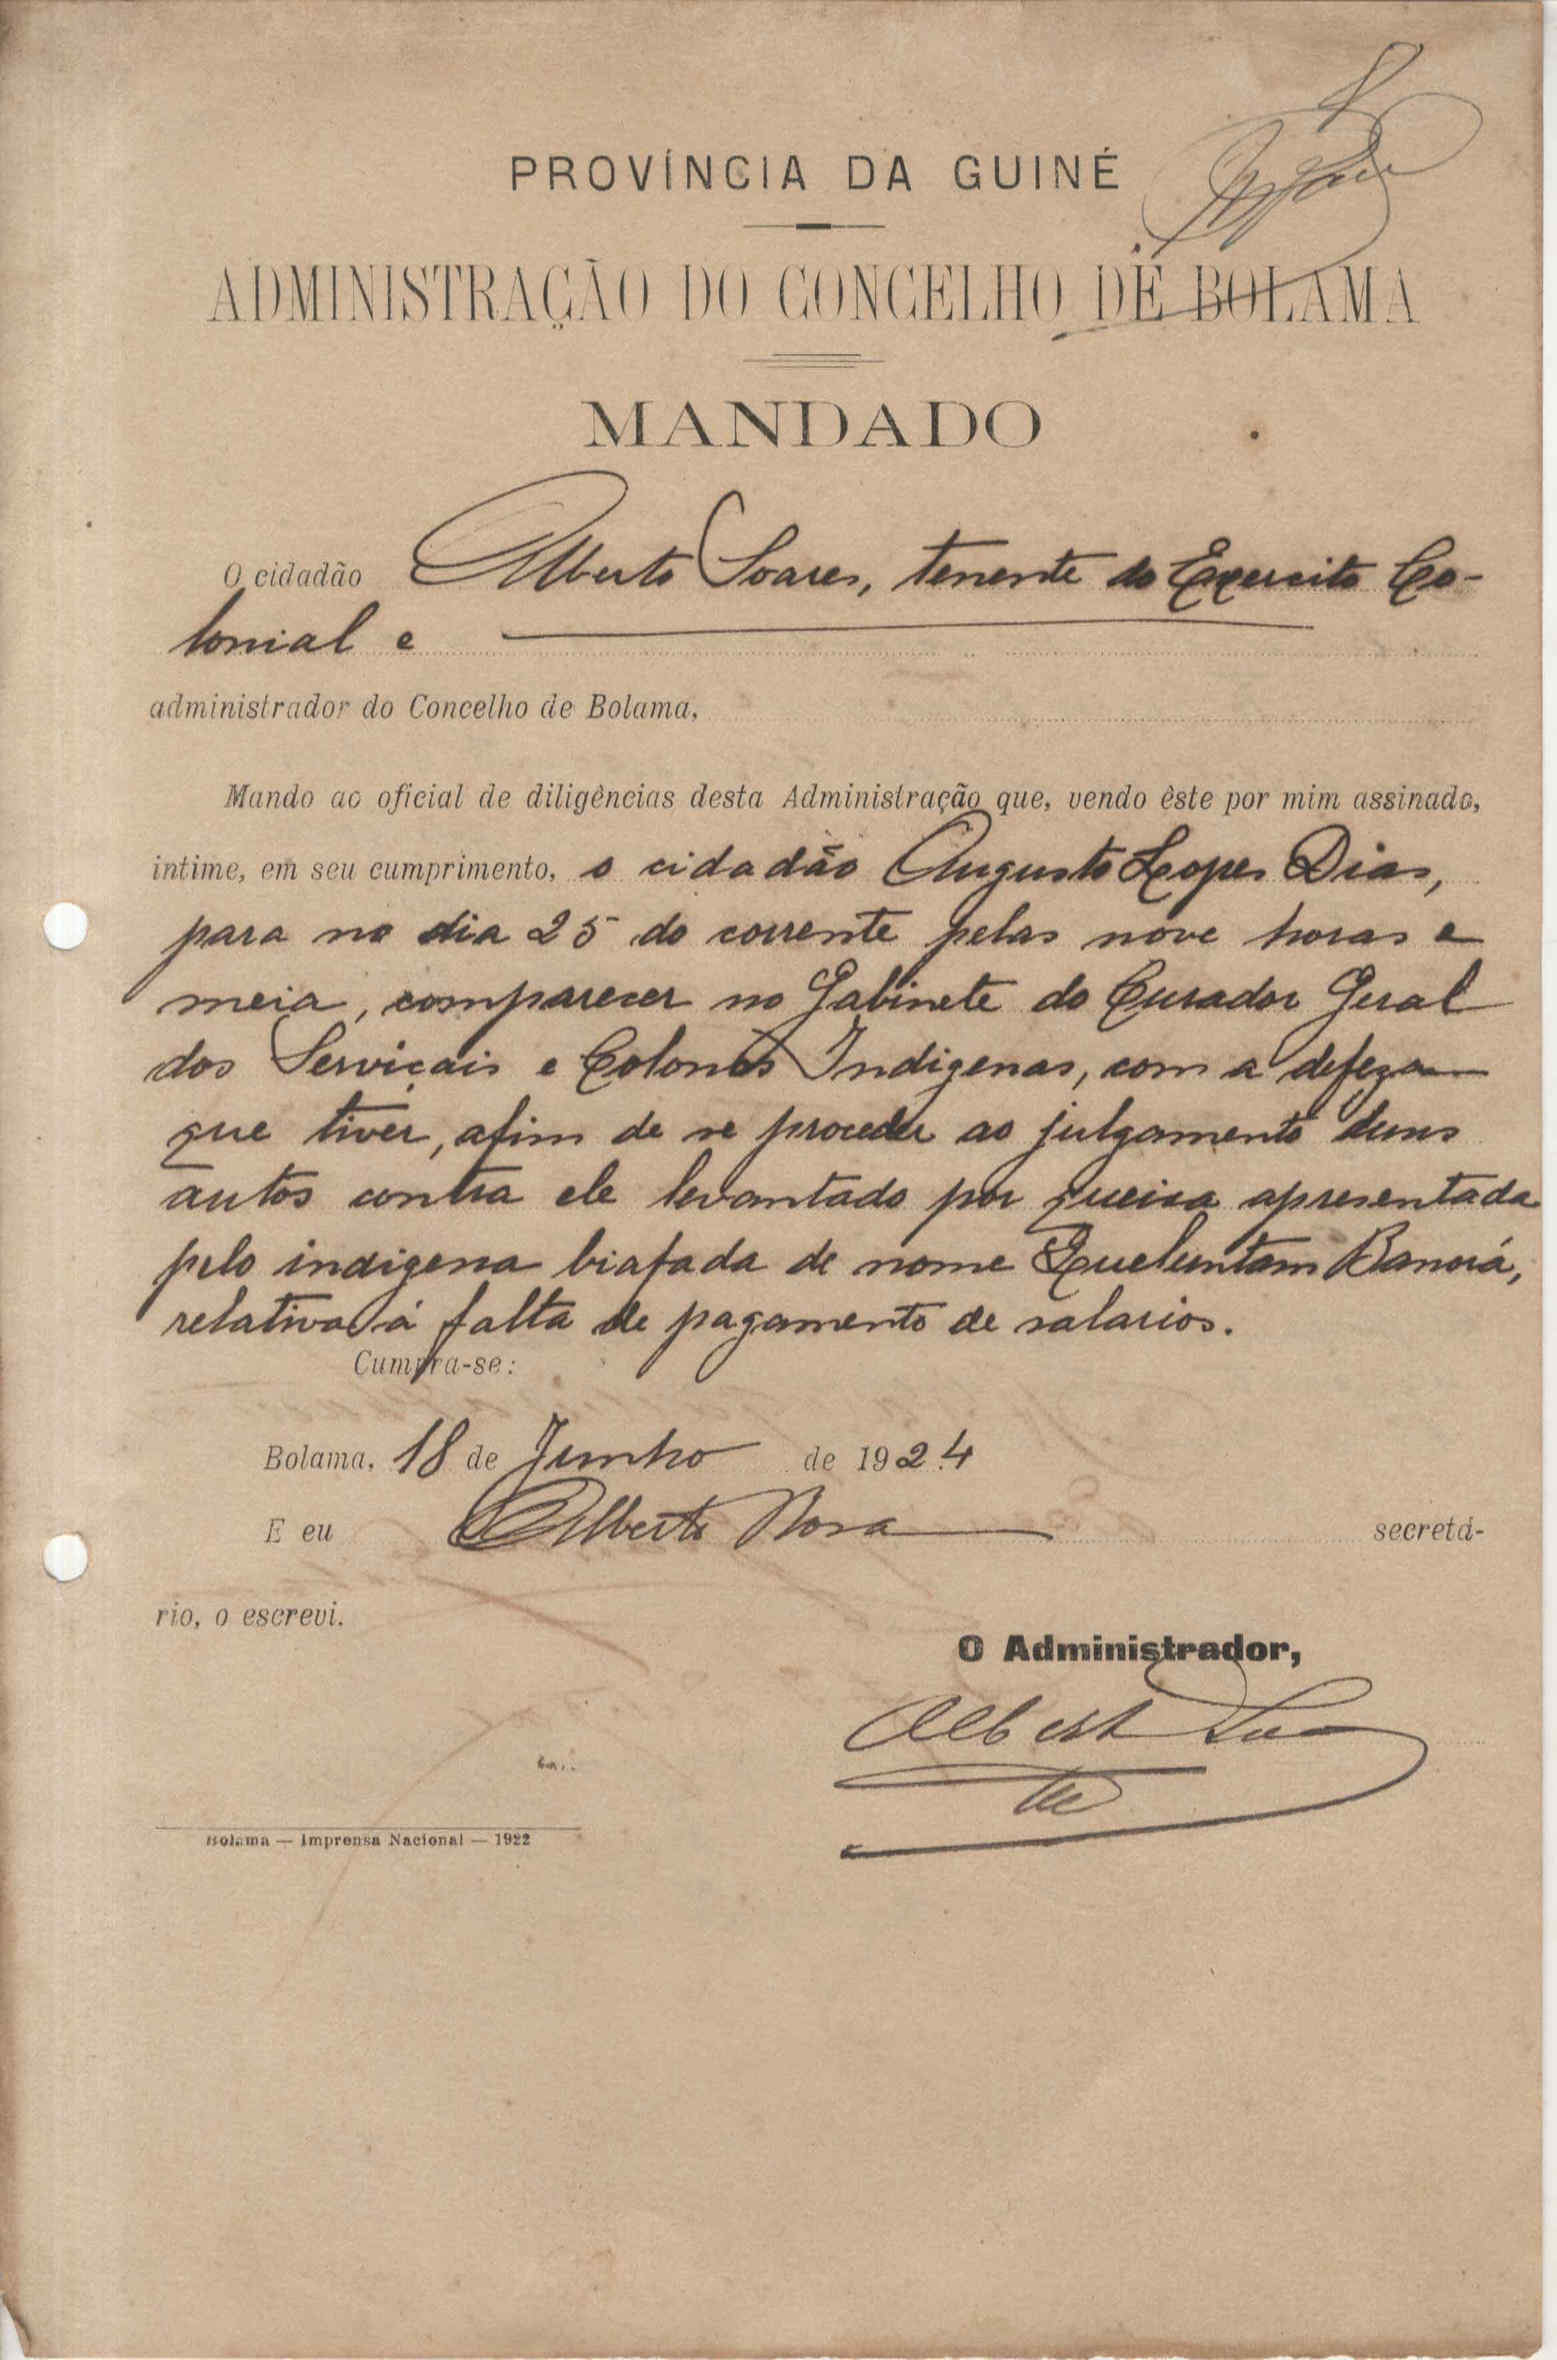 PROVÍNCIA DA GUINÉ
ADMINISTRAÇÃO DO CONCELHO DE BOLAMA
MANDADO
O cidadão Alberto Soares, tenente do Exercito Co-
lonial e
administrador do Concelho de Bolama,
Mando ao oficial de diligências desta Administração que, vendo êste por mim assinado,
intime, em seu cumprimento, o cidadão Augusto Lopes Dias,
para no dia 25 do corrente pelas nove horas e
meia, comparecer no Gabinete do Curador Geral
dos Serviçais e Colonos Indigenas, com a defeza
que tiver, afim de se proceder ao julgamento duns
autos contra ele levantado por queixa apresentada
pelo indigena biafada de nome
relativa á falta de pagamento de salarios.
Cumpra-se:
Bolama, 18 de Junho de 1924
E eu Alberto Rosa secretá-
rio, o escrevi.
O Administrador,
Bolama — Imprensa Nacional — 1922